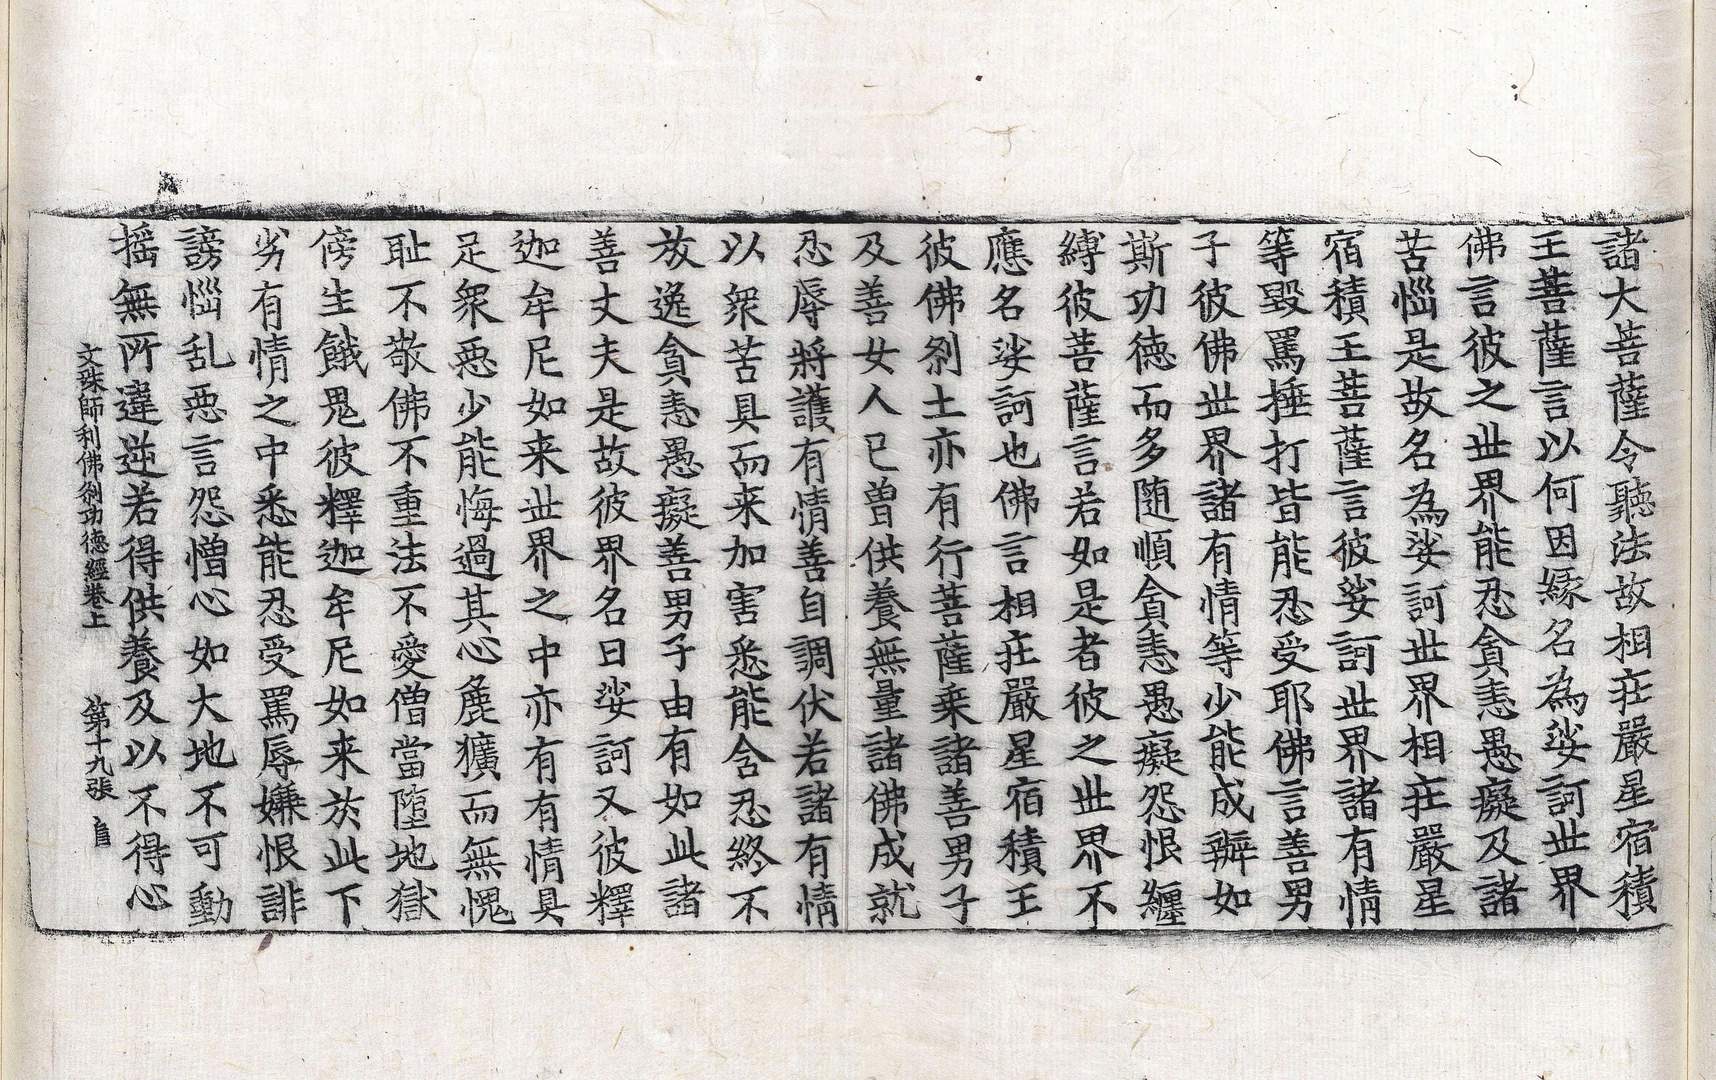 諸大菩薩令聽法故相庄嚴星宿積
王菩薩言以何因緣名為娑訶世界
佛言彼之世界能忍貪恚愚癡及諸
苦惱是故名為娑訶世界相庄嚴星
宿積王菩薩言彼娑訶世界諸有情
等毀罵捶打皆能忍受耶佛言善男
子彼佛世界諸有情等少能成辦如
斯功德而多隨順貪恚愚癡怨恨纏
縛彼菩薩言若如是者彼之世界不
應名娑訶也佛言相庄嚴星宿積王
彼佛剎土亦有行菩薩乘諸善男子
及善女人已曾供養無量諸佛成就
忍辱將護有情善自調伏若諸有情
以衆苦具而来加害悉能含忍終不
放逸貪恚愚癡善男子由有如此諸
善丈夫是故彼界名曰娑訶又彼釋
迦牟尼如来世界之中亦有有情具
足衆惡少能悔過其心麁獷而無愧
耻不敬佛不重法不愛僧當墮地獄
傍生餓鬼彼釋迦牟尼如来於此下
劣有情之中悉能忍受罵辱嫌恨誹
謗惱乱惡言怨憎心如大地不可動
摇無所違逆若得供養及以不得心
文殊師利佛剎功德經卷上 第十九張 𠃵